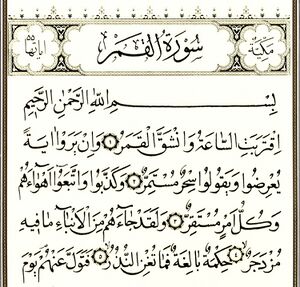 مكية سورة القمر آياتها ٥٥
بسم الله الرحمن الرحيم
اقتربت الساعة وانشق القمر ١ وإن يروا آية
يعرضوا ويقولوا سحر مستمر ٢ وكذبوا واتبعوا أهواءهم
وكل أمر مستقر ٣ ولقد جاءهم من الأنباء ما فيه
مزدجر ٤ حكمة بالغة فما تغن النذر ٥ فتول عنهم يوم